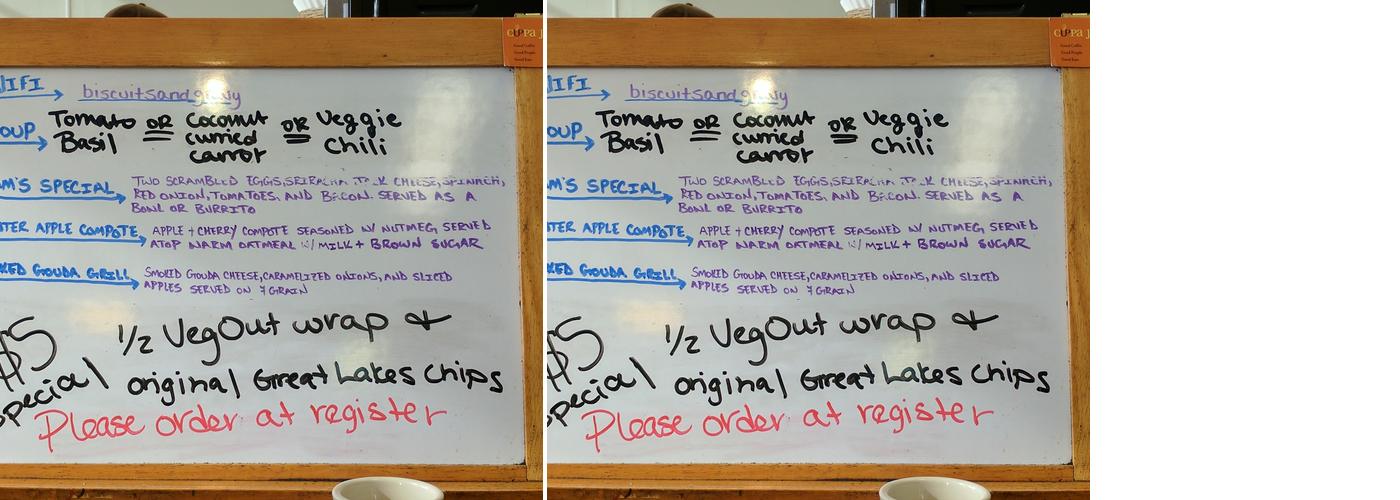 IFI biscuitsandgravy
OUP Tomato Basil OR Coconut curried carrot OR Veggie Chili
M'S SPECIAL TWO SCRAMBLED EGGS, SRIRACHA CHEESE, SPINACH,
RED ONION, TOMATOES, AND BACON. SERVED AS A
BOWL OR BURRITO
TER APPLE COMPOTE APPLE + CHERRY COMPOTE SEASONED W/ NUTMEG, SERVED
ATOP WARM OATMEAL W/ MILK + BROWN SUGAR
KED GOUDA GRILL SMOKED GOUDA CHEESE, CARAMELIZED ONIONS, AND SLICED
APPLES SERVED ON 7 GRAIN
$5 special
1/2 VegOut wrap &
original Great Lakes Chips
Please order at register
IFI biscuitsandgravy
OUP Tomato Basil OR Coconut curried carrot OR Veggie Chili
M'S SPECIAL TWO SCRAMBLED EGGS, SRIRACHA CHEESE, SPINACH,
RED ONION, TOMATOES, AND BACON. SERVED AS A
BOWL OR BURRITO
TER APPLE COMPOTE APPLE + CHERRY COMPOTE SEASONED W/ NUTMEG, SERVED
ATOP WARM OATMEAL W/ MILK + BROWN SUGAR
KED GOUDA GRILL SMOKED GOUDA CHEESE, CARAMELIZED ONIONS, AND SLICED
APPLES SERVED ON 7 GRAIN
$5 special
1/2 VegOut wrap &
original Great Lakes Chips
Please order at register